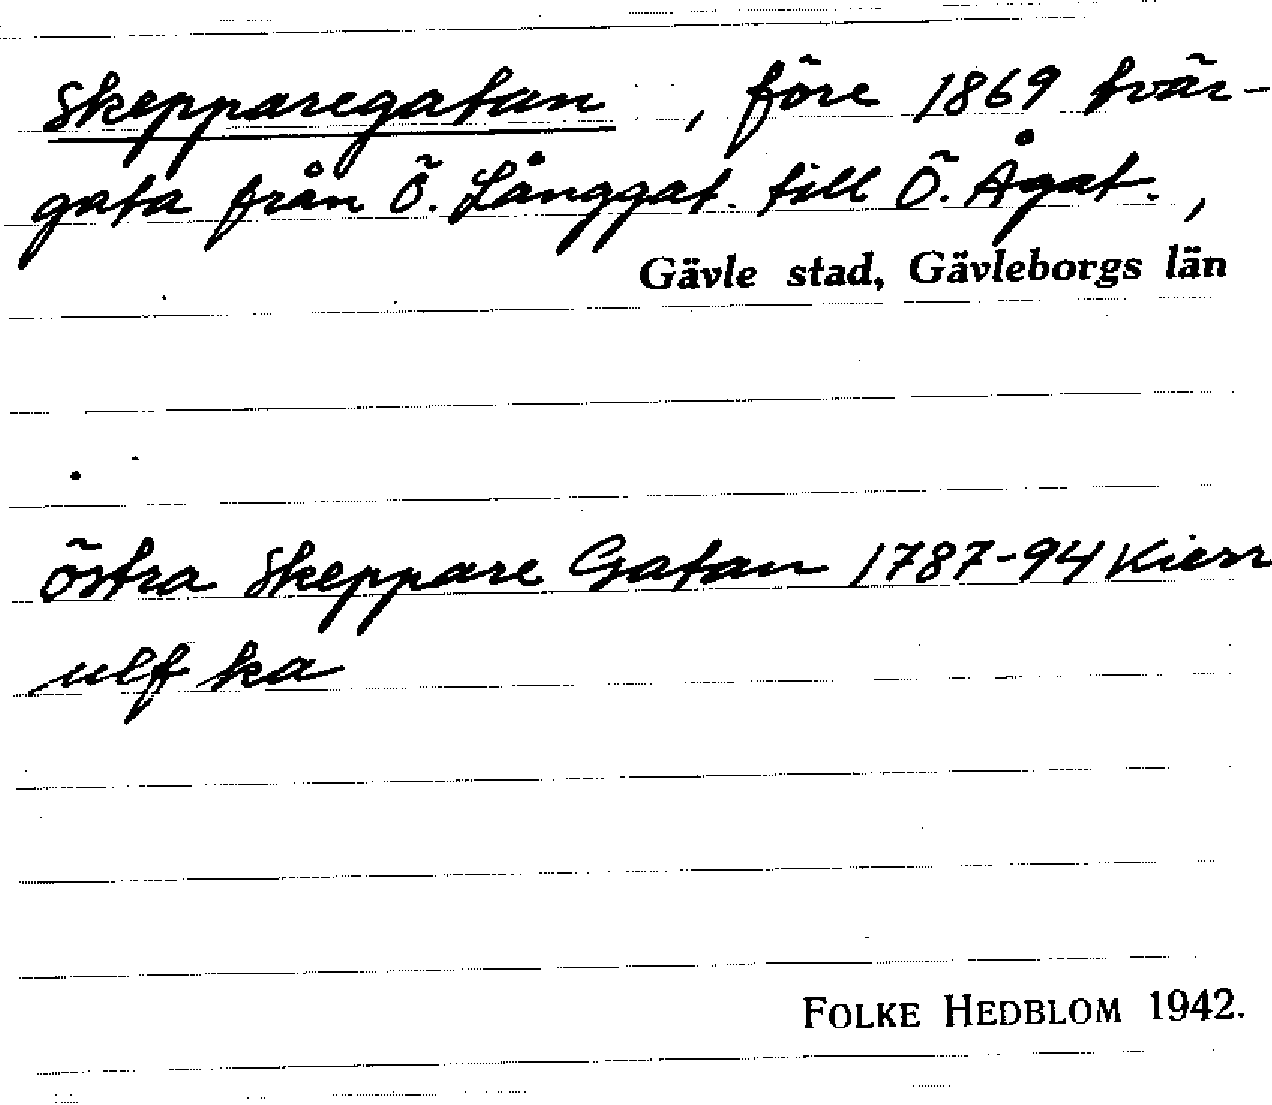 Skepparegatan , före 1869 tvär-
gata från Ö. Långgat. till Ö. Ågat.,
Gävle stad, Gävleborgs län
östra Skeppare Gatan 1787-94 Kierr
ulf ka
FOLKE HEDBLOM 1942.